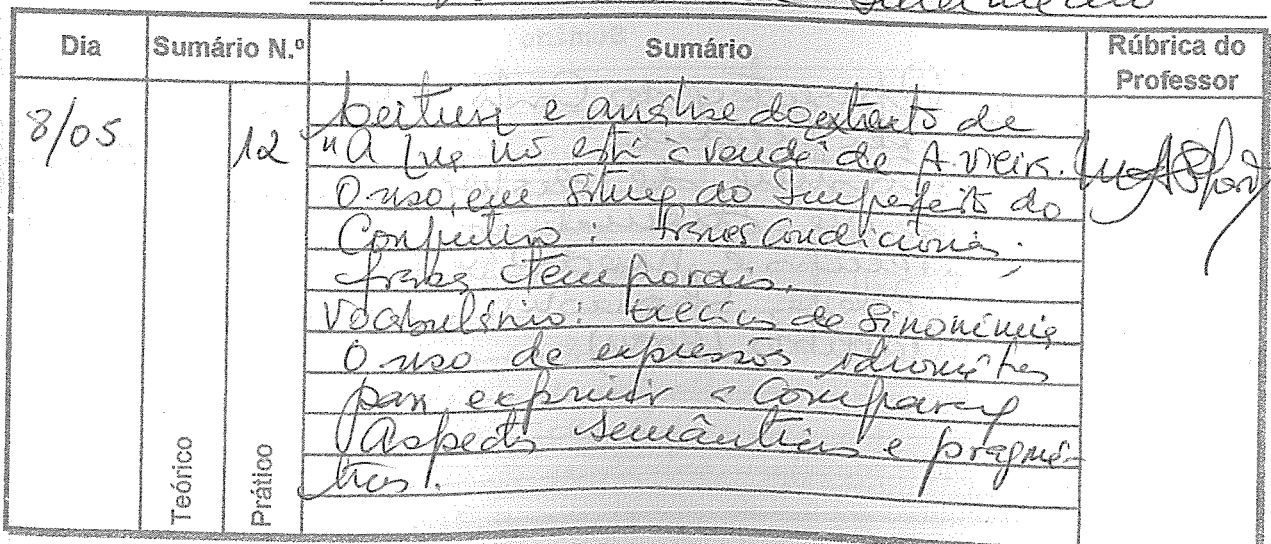 Dia Sumário N.º Sumário Rúbrica do Professor
8/05 12
Leitura e análise do extrato de
"A que não está à venda" de A. Vieira.
O uso, em situação do Imperfeito do
Conjuntivo: frases condicionais;
frases temporais.
Vocabulário: exercícios de sinonímia
O uso de expressões idiomáticas
para exprimir a comparação
Aspectos semânticos e pragmá-
ticos.
Teórico
Prático